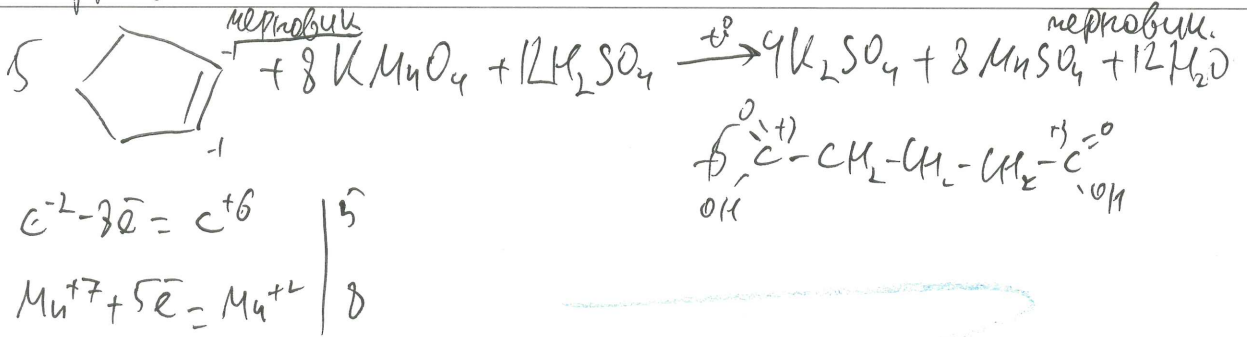 черновик черновик.
5 -1 + 8 KMnO₄ + 12H₂SO₄ →t° 4K₂SO₄ + 8 MnSO₄ + 12H₂O
-1
O +3 C - CH₂ - CH₂ - CH₂ - C +3 = O
5 OH OH
C⁻² - 8ē = C⁺⁶ | 5
Mn⁺⁷ + 5ē = Mn⁺² | 8